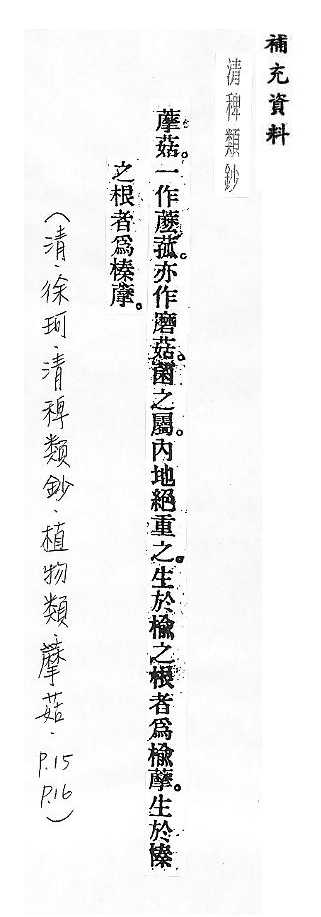 補充資料
清稗類鈔
蘑菇。一作蘑菰。亦作磨菇。菌之屬。內地絕重之。生於榆之根者爲榆蘑。生於榛
之根者爲榛蘑。
(清.徐珂.清稗類鈔.植物類.蘑菇.P.15 P.16)